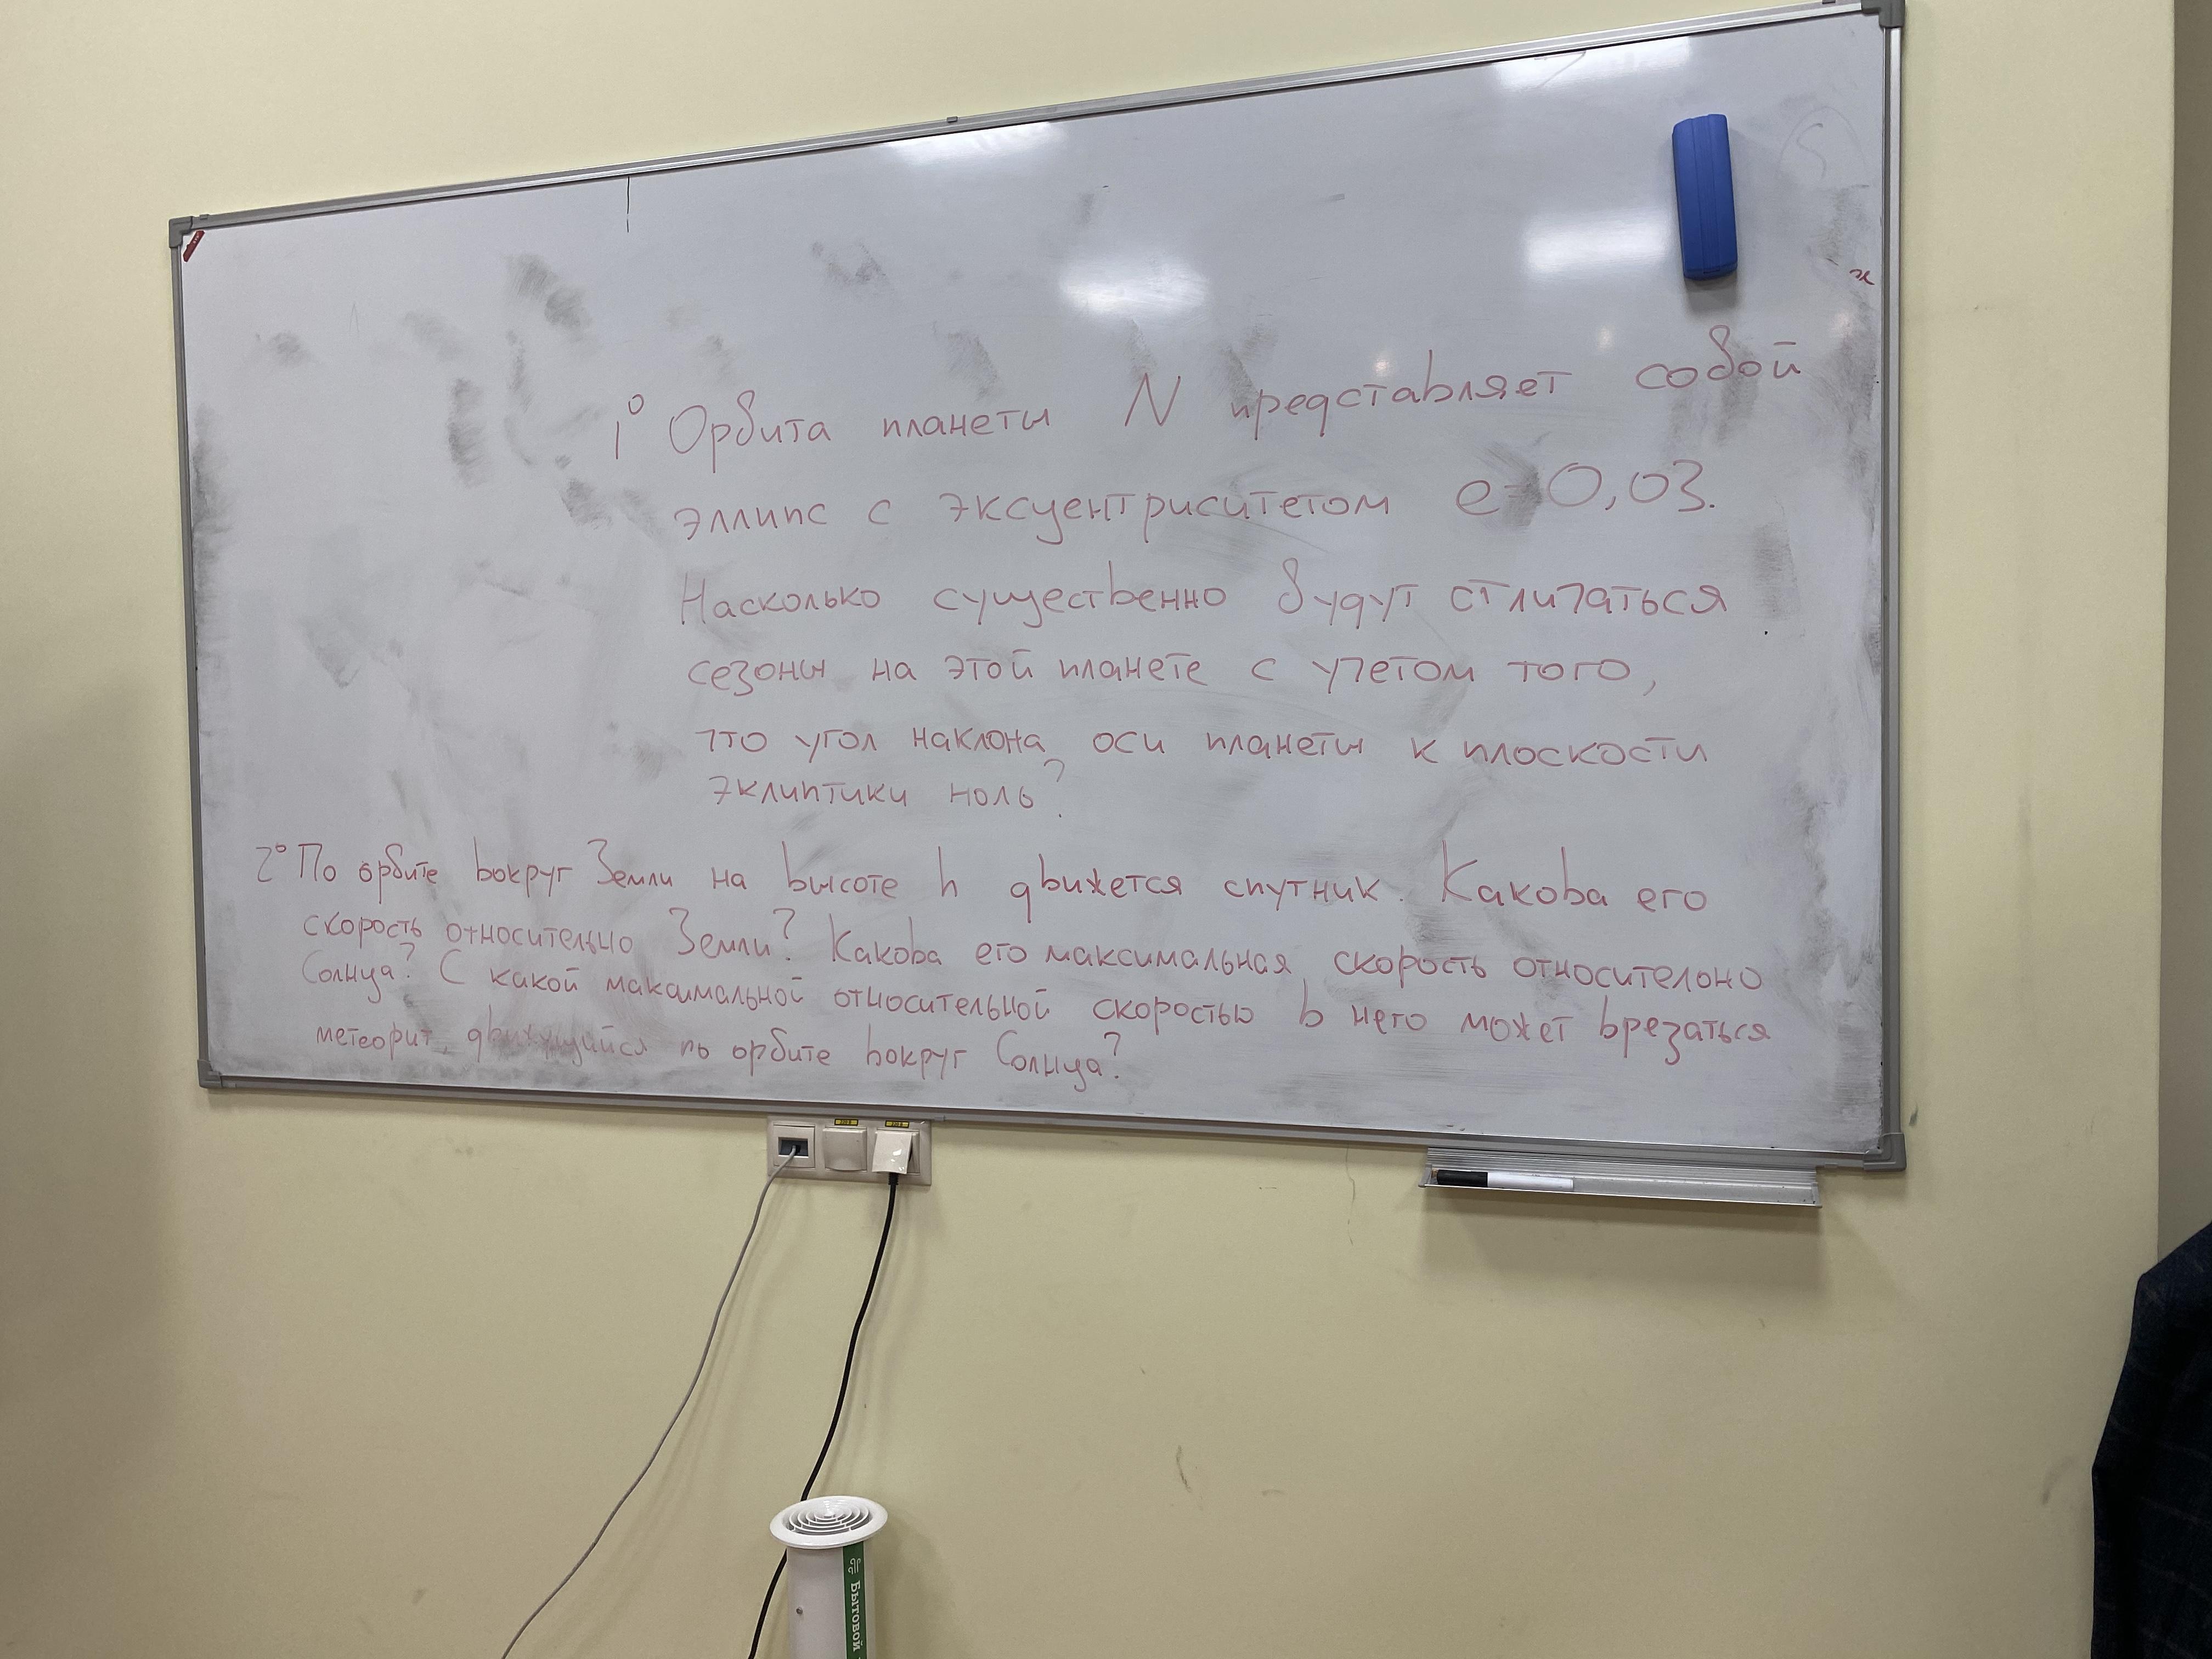 1° Орбита планеты N представляет собой
эллипс с эксцентриситетом e=0,03.
Насколько существенно будут отличаться
сезоны на этой планете с учетом того,
что угол наклона оси планеты к плоскости
эклиптики ноль?
2° По орбите вокруг Земли на высоте h движется спутник. Какова его
скорость относительно Земли? Какова его максимальная скорость относителоно
Солнца? С какой максимальной относительной скоростью в него может врезаться
метеорит, движущийся по орбите вокруг Солнца?
Бытовой